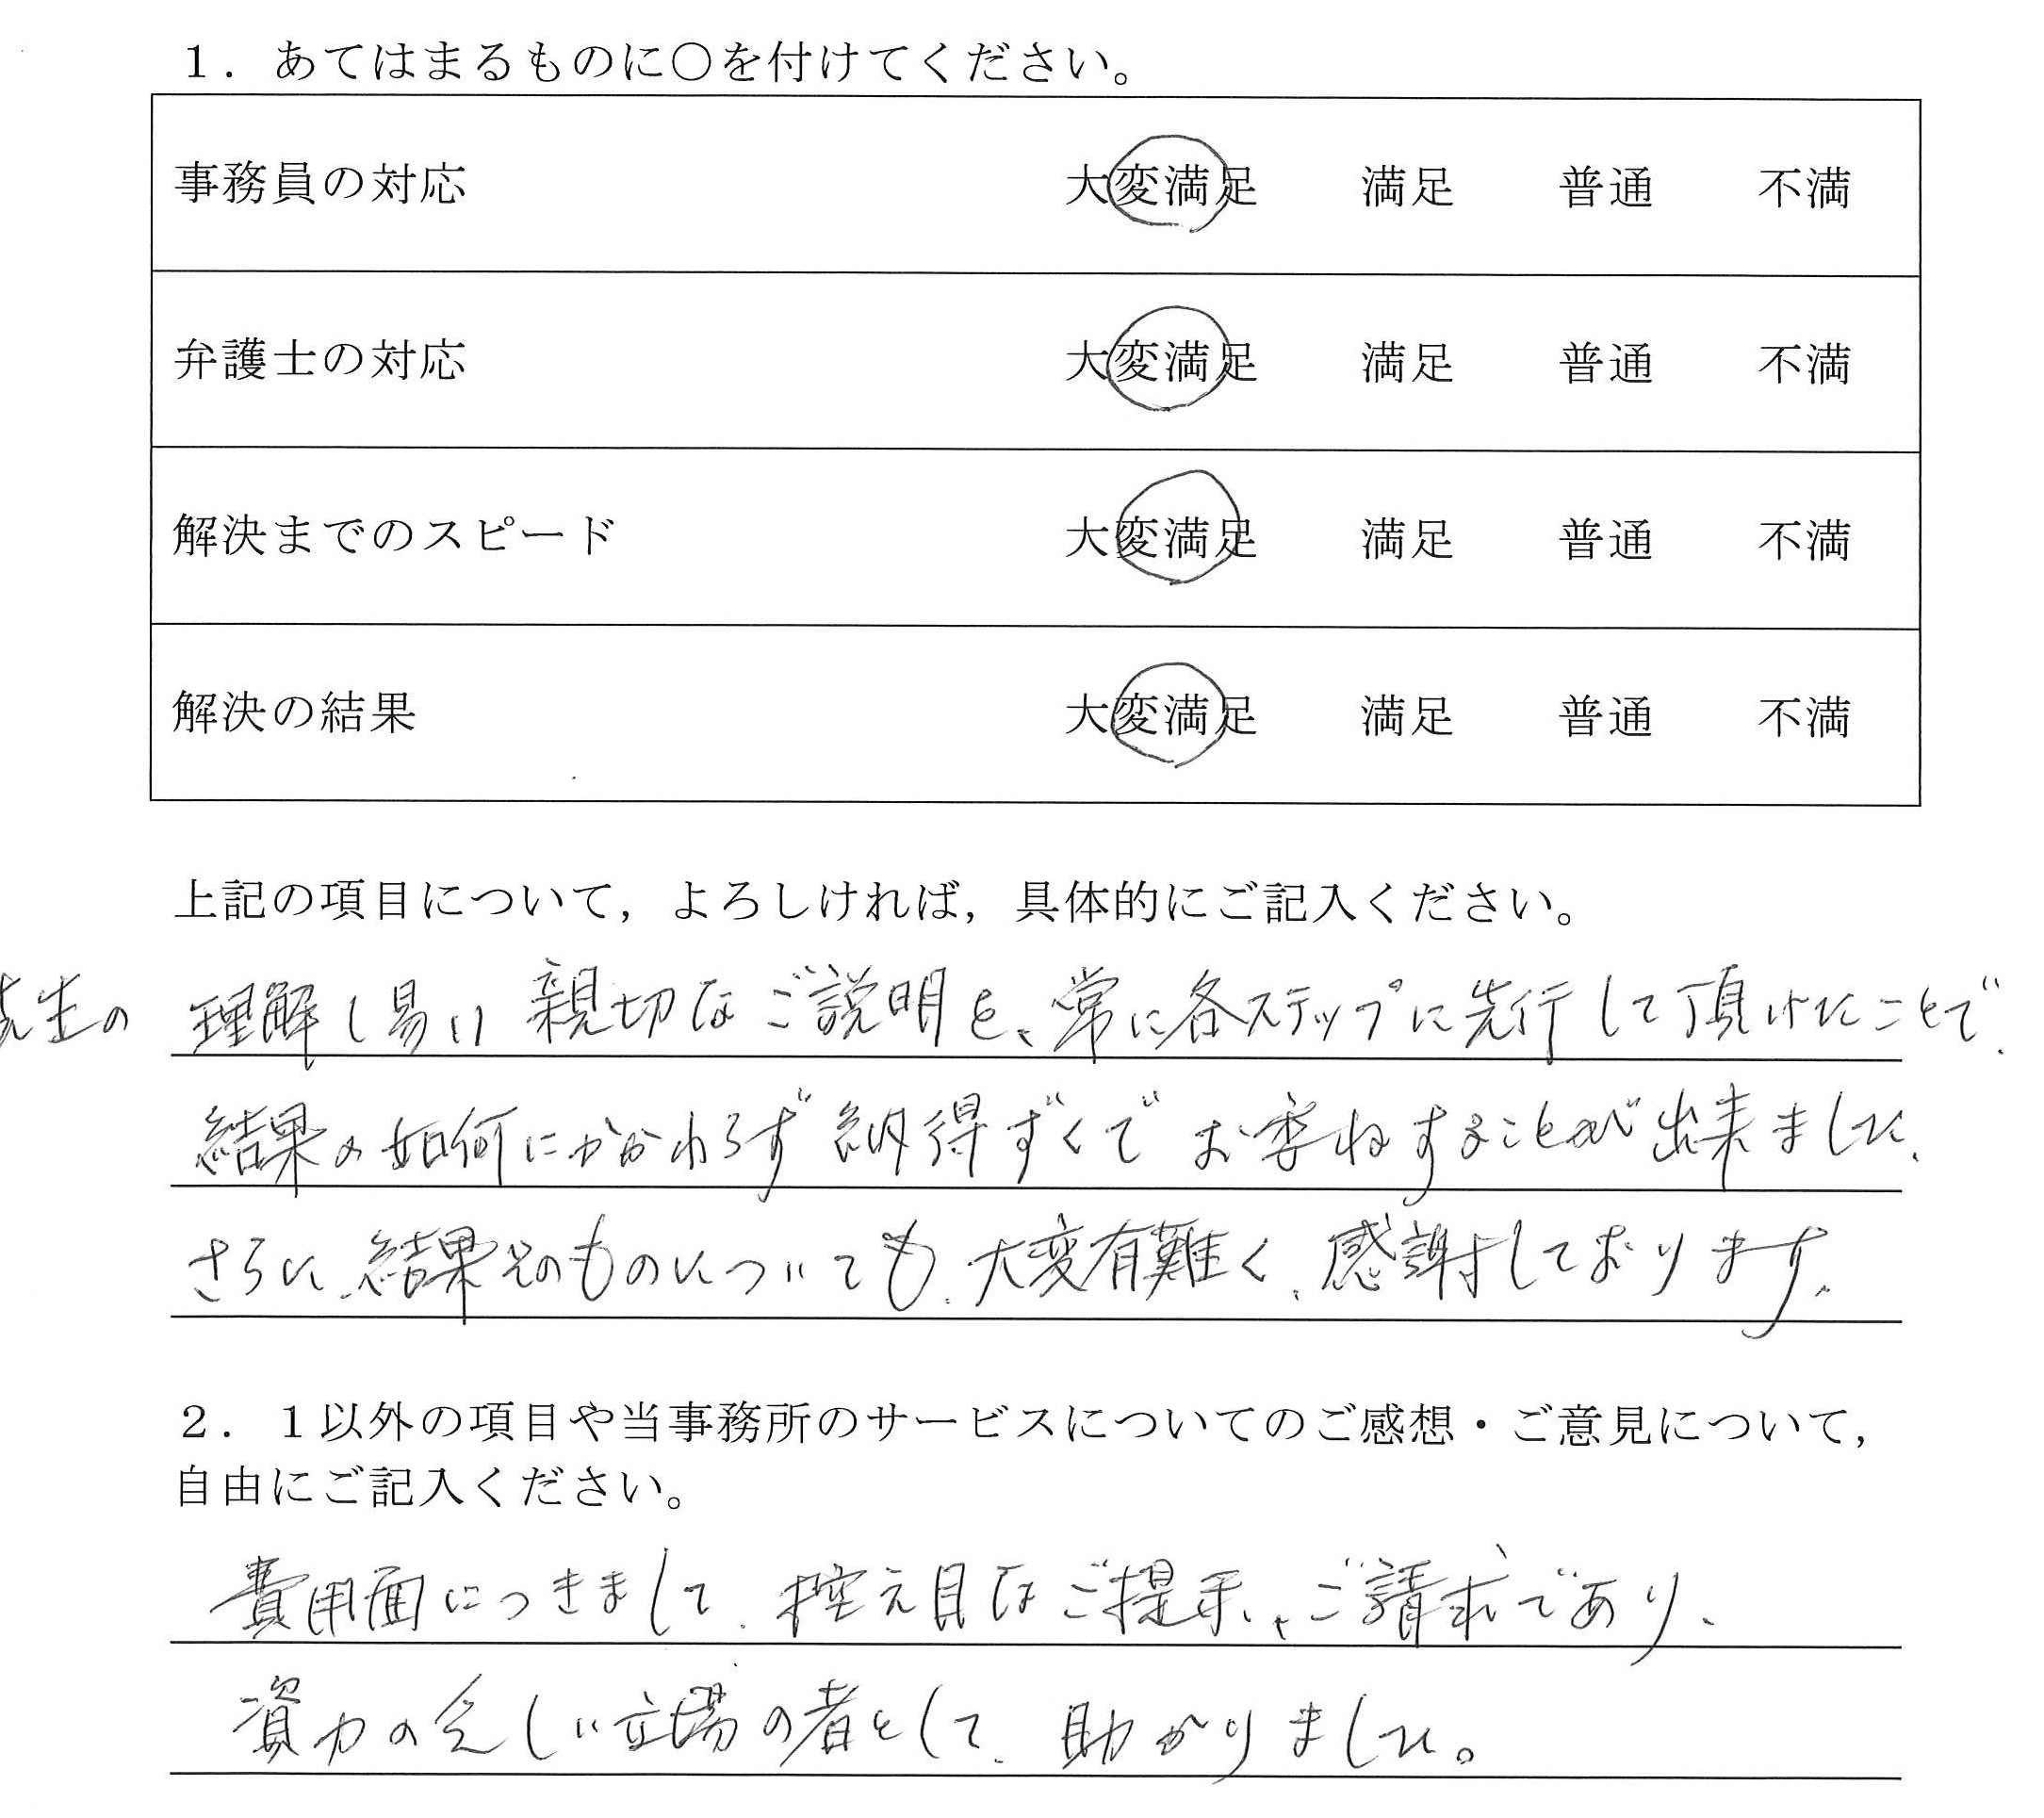 1．あてはまるものに○を付けてください。
事務員の対応 大変満足 満足 普通 不満
弁護士の対応 大変満足 満足 普通 不満
解決までのスピード 大変満足 満足 普通 不満
解決の結果 大変満足 満足 普通 不満
上記の項目について，よろしければ，具体的にご記入ください。
先生の 理解し易い親切なご説明を、常に各ステップに先行して頂けたことで、
結果の如何にかかわらず納得ずくでお委ねすることが出来ました。
さらに、結果そのものについても、大変有難く、感謝しております。
2．1以外の項目や当事務所のサービスについてのご感想・ご意見について，
自由にご記入ください。
費用面につきまして、控え目なご提示、ご請求であり、
資力の乏しい立場の者として、助かりました。